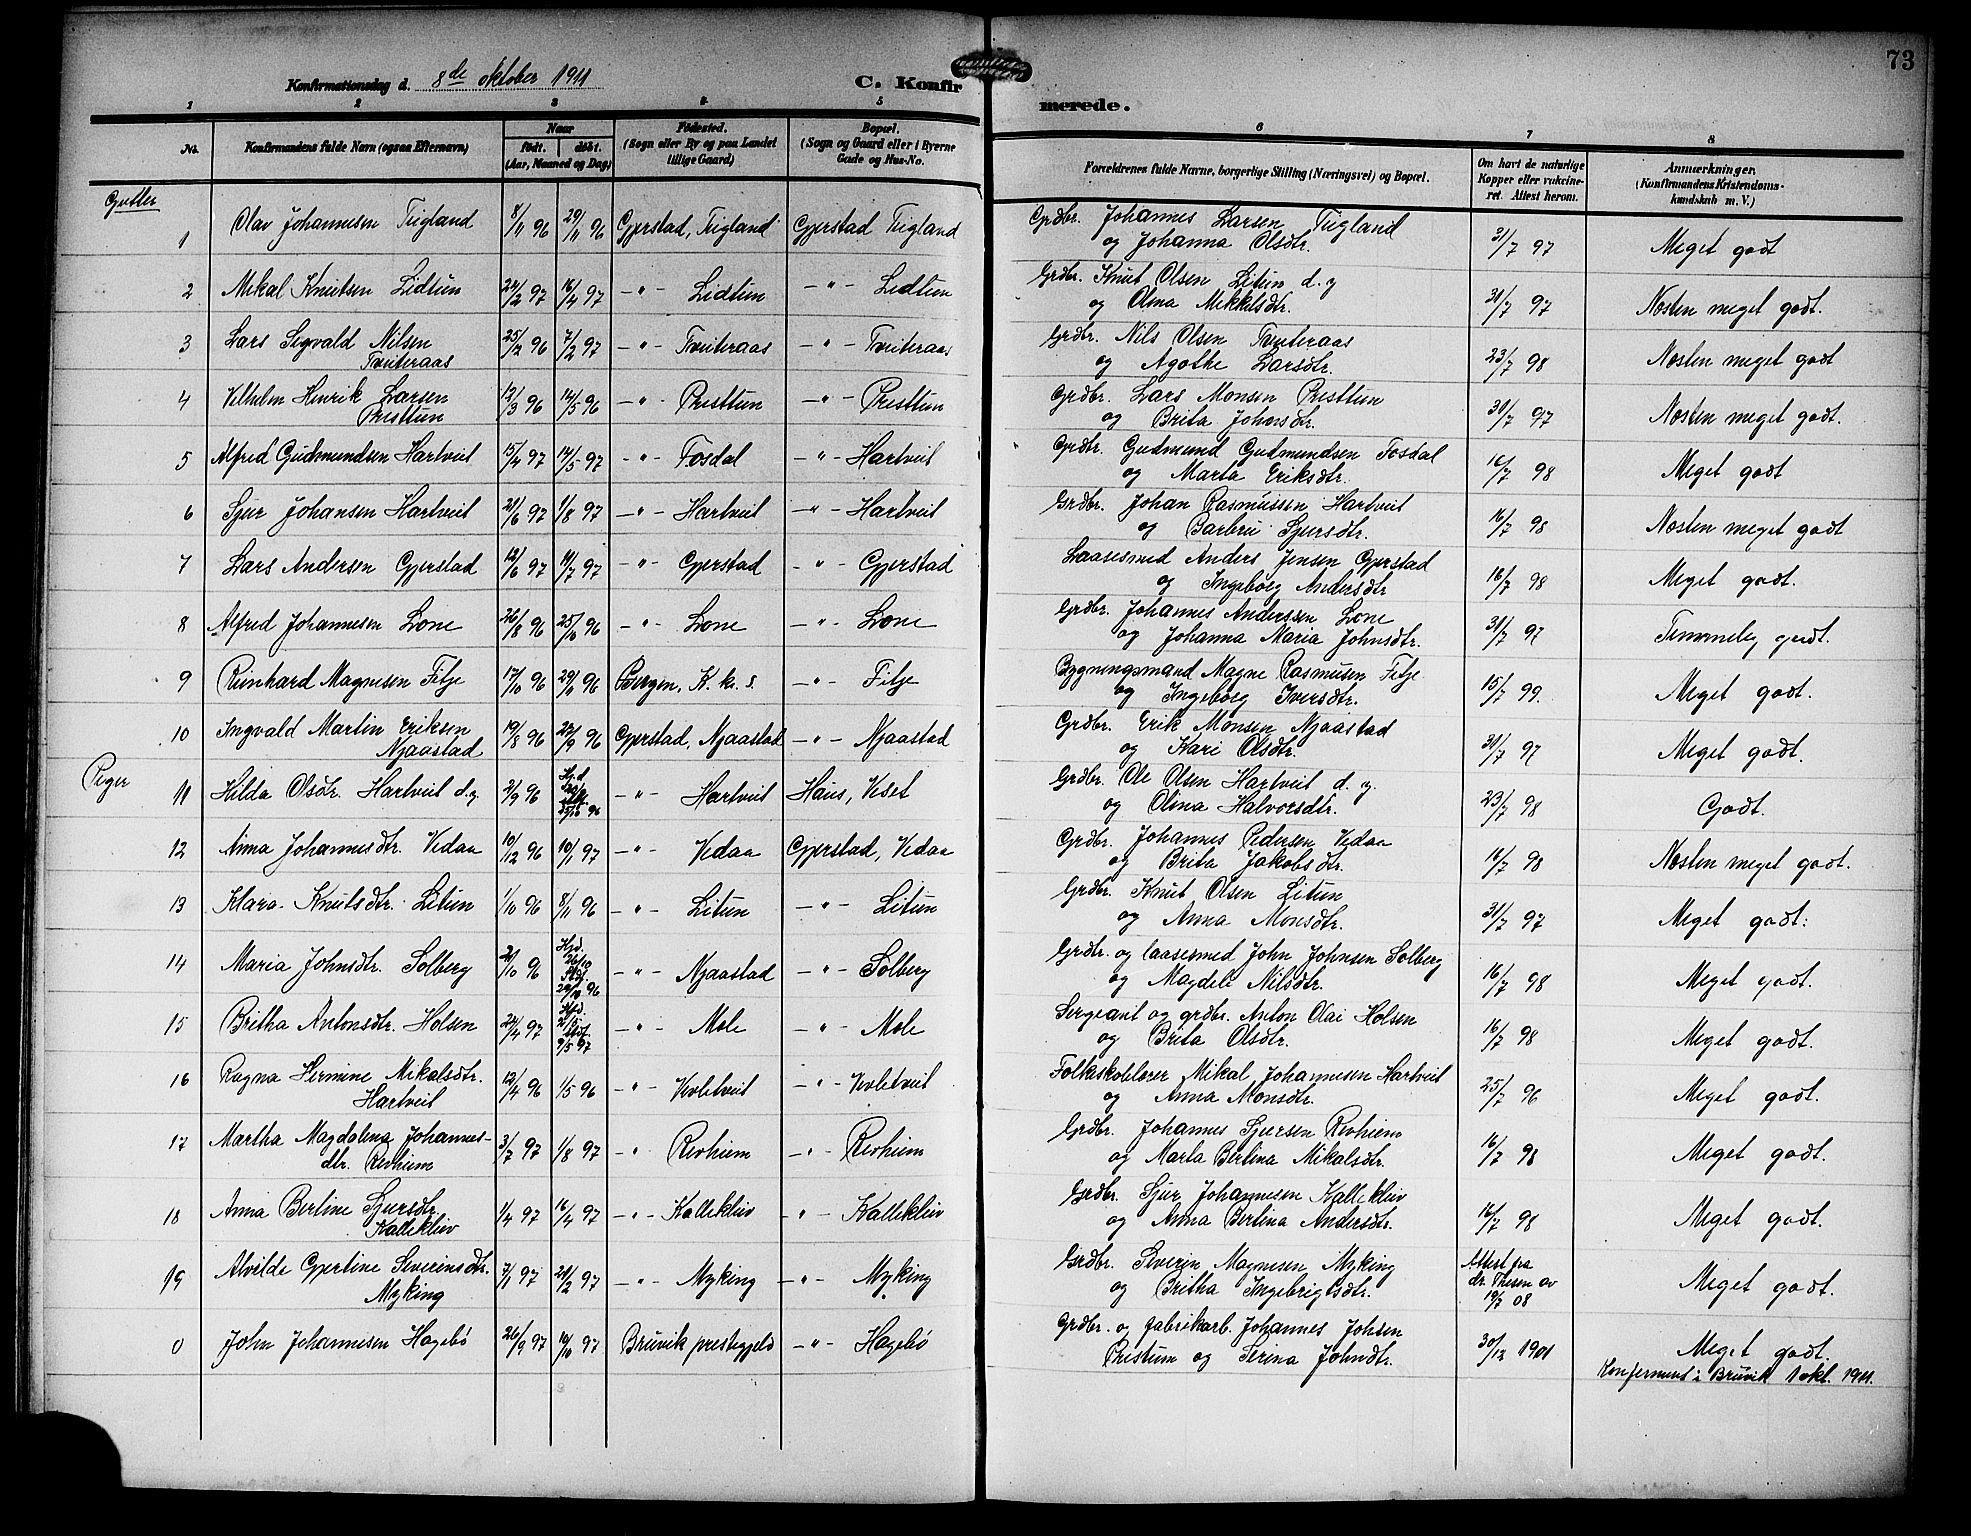 73
Konfirmationsdag d. 8de oktober 1911
C. Konfirmerede.
1 2 3 4 5 6 7 8
No. Konfirmandens fulde Navn (ogsaa Efternavn) Naar født. døbt. (Aar, Maaned og Dag) Fødested. (Sogn eller By og paa Landet tillige Gaard) Bopæl. (Sogn og Gaard eller i Byerne Gade og Hus-No. Forældrenes fulde Navne, borgerlige Stilling (Næringsvei) og Bopæl. Om havt de naturlige Kopper eller vaccineret. Attest herom. Anmærkninger. (Konfirmandens Kristendomskundskab m. V.)
Gutter
1 Olav Johannesen Tiigland 8/11 96 29/11 96 Gjerstad, Tiigland Gjerstad Tiigland Grdbr. Johannes Larsen Tiigland og Johanna Olsdtr. 31/7 97 Meget godt
2 Mikal Knutsen Lidtun 24/2 97 16/4 97 -"- Lidtun -"- Lidtun Grdbr. Knut Olsen Litun d. y og Olina Mikkelsdtr. 31/7 97 Næsten meget godt.
3 Lars Sigvald Nilsen Tveiteraas 25/12 96 7/2 97 -"- Tveiteraas -"- Tveiteraas Grdbr. Nils Olsen Tveiteraas og Agothe Larsdtr. 23/7 98 Næsten meget godt
4 Vilhelm Henrik Larsen Presttun 12/3 96 14/5 96 -"- Presttun -"- Presttun Grdbr. Lars Monsen Presttun og Brita Johnsdtr. 31/7 97 Næsten meget godt.
5 Alfred Gudmundsen Hartveit 15/4 97 14/5 97 -"- Fosdal -"- Hartveit Grdbr. Gudmund Gudmundsen Fosdal og Marta Eriksdtr. 16/7 98 Meget godt
6 Sjur Johansen Hartveit 21/6 97 1/8 97 -"- Hartveit -"- Hartveit Grdbr. Johan Rasmussen Hartveit og Barbru Sjursdtr. 16/7 98 Næsten meget godt
7 Lars Andersen Gjerstad 12/6 97 11/7 97 -"- Gjerstad -"- Gjerstad Laasesmed Anders Jensen Gjerstad og Ingeborg Andersdtr 16/7 98 Meget godt.
8 Alfred Johannesen Lone 26/8 96 25/10 96 -"- Lone -"- Lone Grdbr. Johannes Anderssen Lone og Johanna Maria Johnsdtr. 31/7 97 Temmelig godt.
9 Reinhard Magnesen Fitje 17/10 96 29/11 96 Bergen, K. k. s. -"- Fitje Bygningsmand Magne Rasmusen Fitje og Ingeborg Iversdtr. 15/7 99. Meget godt.
10 Ingvald Martin Eriksen Njaastad 19/8 96 27/9 96 Gjerstad, Njaastad -"- Njaastad Grdbr. Erik Monsen Njaastad og Kari Olsdtr. 31/7 97 Meget godt.
Piger
11 Hilda Olsdtr. Hartveit d.y 2/9 96 Hjd. 25/10 96 -"- Hartveit Haus, Viset Grdbr. Ole Olsen Hartveit d. y. og Olina Halvorsdtr. 23/7 98 Godt.
12 Anna Johannesdtr. Vedaa 10/12 96 10/1 97 -"- Vedaa Gjerstad, Vedaa Grdbr. Johannes Pedersen Vedaa og Brita Jakobsdtr. 16/7 98 Næsten meget godt.
13 Klara Knutsdtr. Litun 1/10 96 8/11 96 -"- Litun -"- Litun Grdbr. Knut Olsen Litun og Anna Monsdtr. 31/7 97 Meget godt.
14 Maria Johnsdtr. Solberg 21/10 96 Hjd. 26/10 Stdf. 29/11 96 -"- Njaastad -"- Solberg Grdbr. og laasesmed John Johnsen Solberg og Magdeli Nilsdtr. 16/7 98 Meget godt.
15 Britha Antonsdtr. Holsen 24/4 97 Hjd. 2/5 9/5 97 -"- Mele -"- Mele Sergeant og grdbr. Anton Olai Holsen og Brita Olsdtr. 16/7 98 Meget godt.
16 Ragna Hermine Mikalsdtr. Hartveit 12/4 96 1/5 96 -"- Kvoletveit -"- Kvoletveit Folkskolelærer Mikal Johannesen Hartveit og Anna Monsdtr. 25/7 96 Meget godt.
17 Martha Magdalena Johannesdtr. Revheim 3/7 97 1/8 97 -"- Revheim -"- Revheim Grdbr. Johannes Sjursen Revheim og Marta Bertina Mikalsdtr. 16/7 98 Meget godt.
18 Anna Bertine Sjursdtr. Kallekleiv 1/4 97 16/4 97 -"- Kallekleiv " Kallekleiv Grdbr. Sjur Johannesen Kallekleiv og Anna Bertina Andersdtr. 16/7 98 Meget godt.
19 Alvilde Gjertine Severinsdtr. Myking 7/1 97 21/2 97 -"- Myking -"- Myking Grdbr. Severin Magnesen Myking og Britha Ingebrigtsdtr. Attest fra dr. Thesen av 19/7 08 Meget godt.
0 John Johannesen Hagebø 26/9 97 10/10 97 Bruvik prestegjeld -"- Hagebø Grdbr. og fabrikarb. Johannes Johsen Pristum og Serina Johndtr. 30/12 1901 Meget godt.
Konfermund i Bruvik 1 okt. 1911.